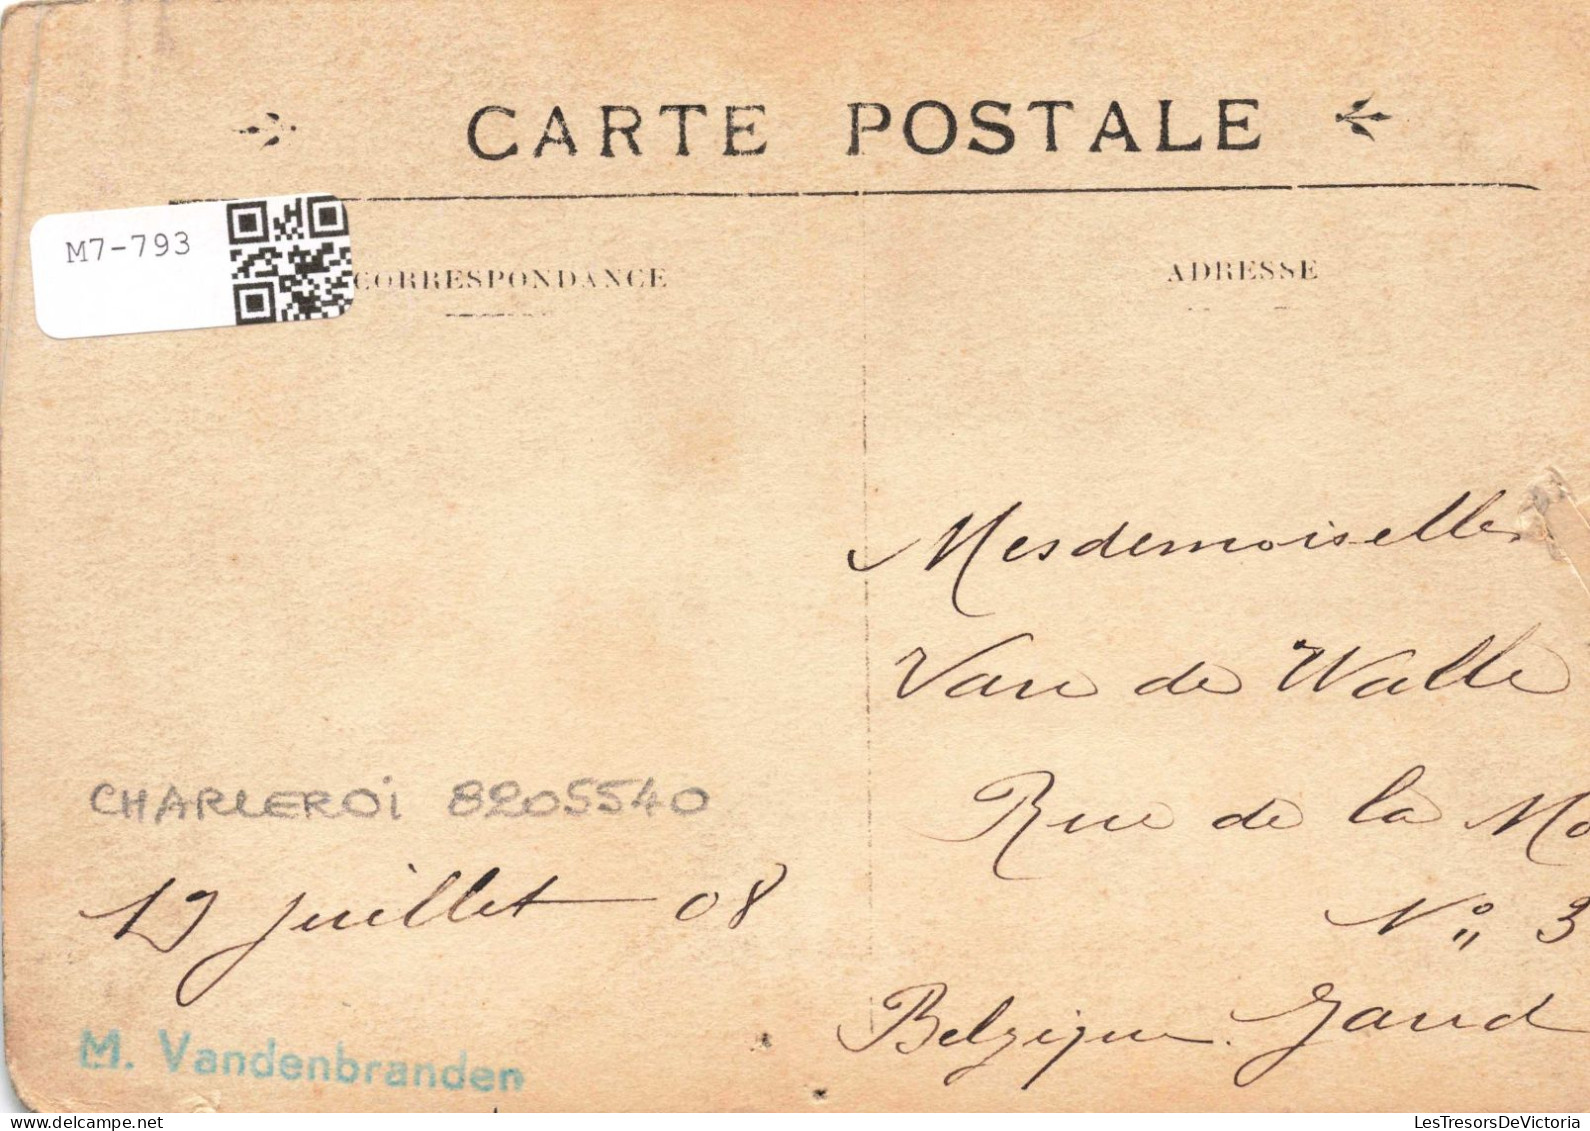 CARTE POSTALE
M7-793
CORRESPONDANCE
ADRESSE
Mesdemoiselles
Van de Walle
Rue de la
N° 3
Belgique. Gand
CHARLEROI 8205540
19 juillet 08
M. Vandenbranden
LesTresorsDeVictoria